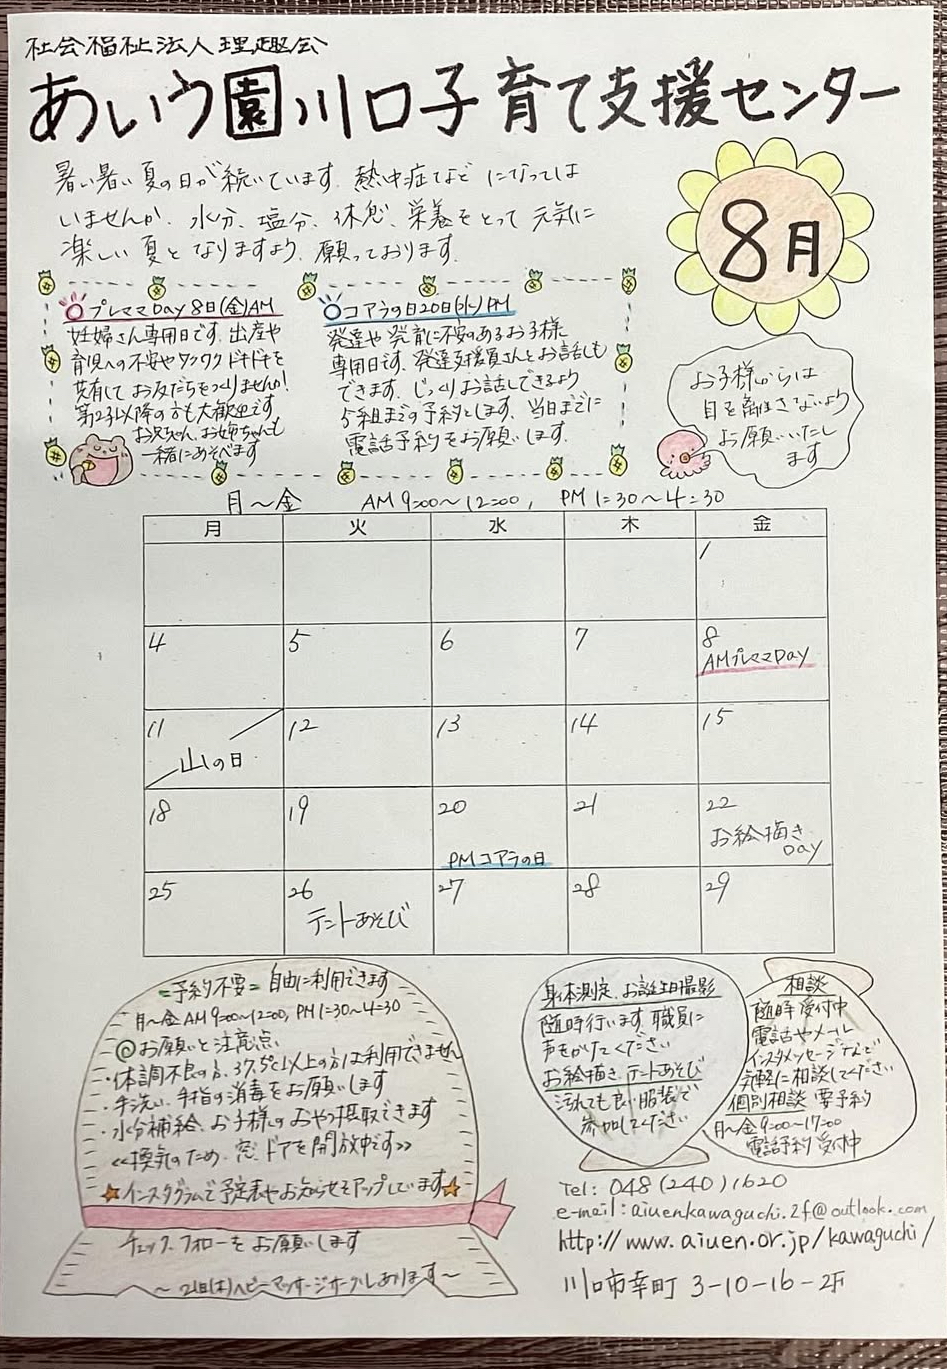 社会福祉法人理趣会
あいう園川口子育て支援センター
8月
暑い暑い夏の日が続いています。熱中症などになっては
いませんか。水分、塩分、休息、栄養をとって元気に
楽しい夏となりますよう、願っております。
プレママDay 8日(金)AM
妊婦さん専用日です。出産や
育児への不安やワクワクドキドキを
共有してお友だちをつくりませんか!
第2子以降の方も大歓迎です
お兄ちゃん、お姉ちゃんも
一緒にあそべます
コアラの日20日(水)PM
発達や発育に不安のあるお子様
専用日です。発達支援員さんとお話しも
できます。じっくりお話しできるよう
5組までの予約とします。当日までに
電話予約をお願いします。
お子様からは
目を離さないよう
お願いいたし
ます
月~金 AM9:00~12:00, PM1:30~4:30
月 火 水 木 金
1
4 5 6 7 8
AMプレママDay
11 12 13 14 15
山の日
18 19 20 21 22
PMコアラの日
お絵描き
Day
25 26 27 28 29
テントあそび
=予約不要= 自由に利用できます
月~金AM9:00~12:00, PM1:30~4:30
◎お願いと注意点
・体調不良の方、37.5℃以上の方は利用できません
・手洗い、手指の消毒をお願いします
・水分補給、お子様のおやつ摂取できます
<<換気のため、窓、ドアを開放中です>>
☆インスタグラムで予定表やお知らせをアップしています☆
チェック、フォローをお願いします
~21日(木)ベビーマッサージサークルあります~
身体測定、お誕生日撮影
随時行います。職員に
声をかけてください
お絵描き、テントあそび
汚れても良い服装で
参加してください
相談
随時受付中
電話やメール
インスタメッセージなどで
気軽に相談してください
個別相談 要予約
月~金9:00~17:00
電話予約受付中
Tel: 048(240)1620
e-mail:aiuenkawaguchi.2f@outlook.com
http://www.aiuen.or.jp/kawaguchi/
川口市幸町 3-10-16-2F